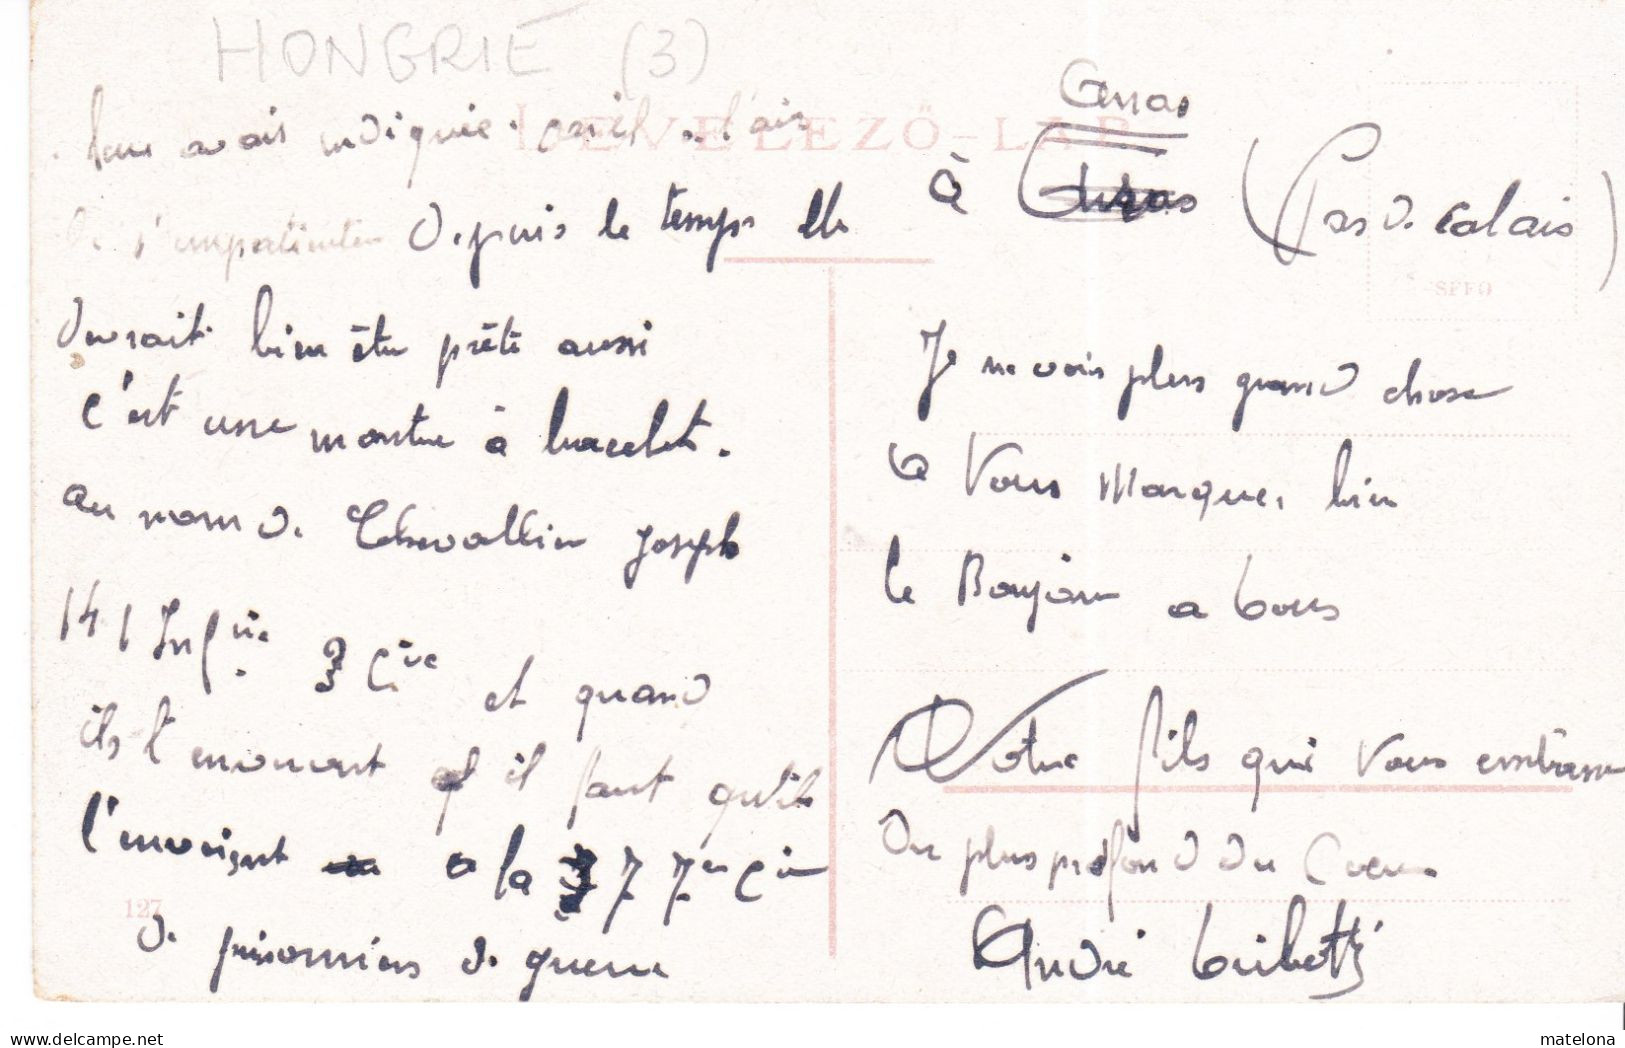 HONGRIE (3)
LEVELEZŐ-LAP
avais indiquie
Depuis le temps elle
Devrait bien être prête aussi
C'est une montre à bracelet.
au nom de Chevallier Joseph
141 Infrie 3 Cie et quand
ils l'
il faut qu'ils
l'envoient a la 77em Cie
de prisonniers de guerre
127
Arras
à Arras (Pas de Calais)
Je ne vois plus grand chose
a Vous Marquer bien
le Bonjour a tous
Votre fils qui Vous embrasse
Du plus profond du Coeur
André
matelona